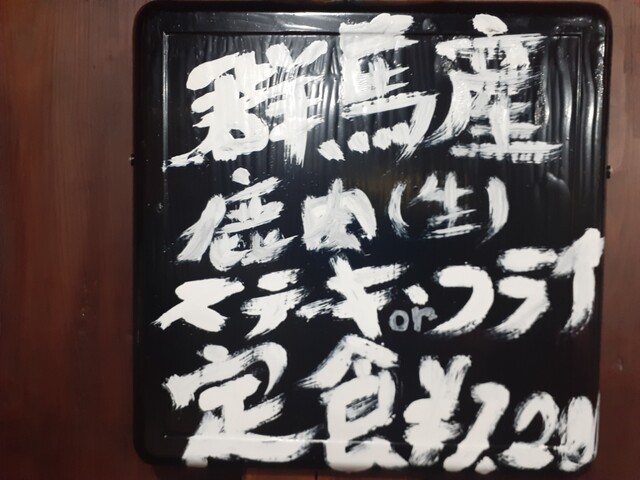 群馬産
鹿肉(生)
ステーキorフライ
定食